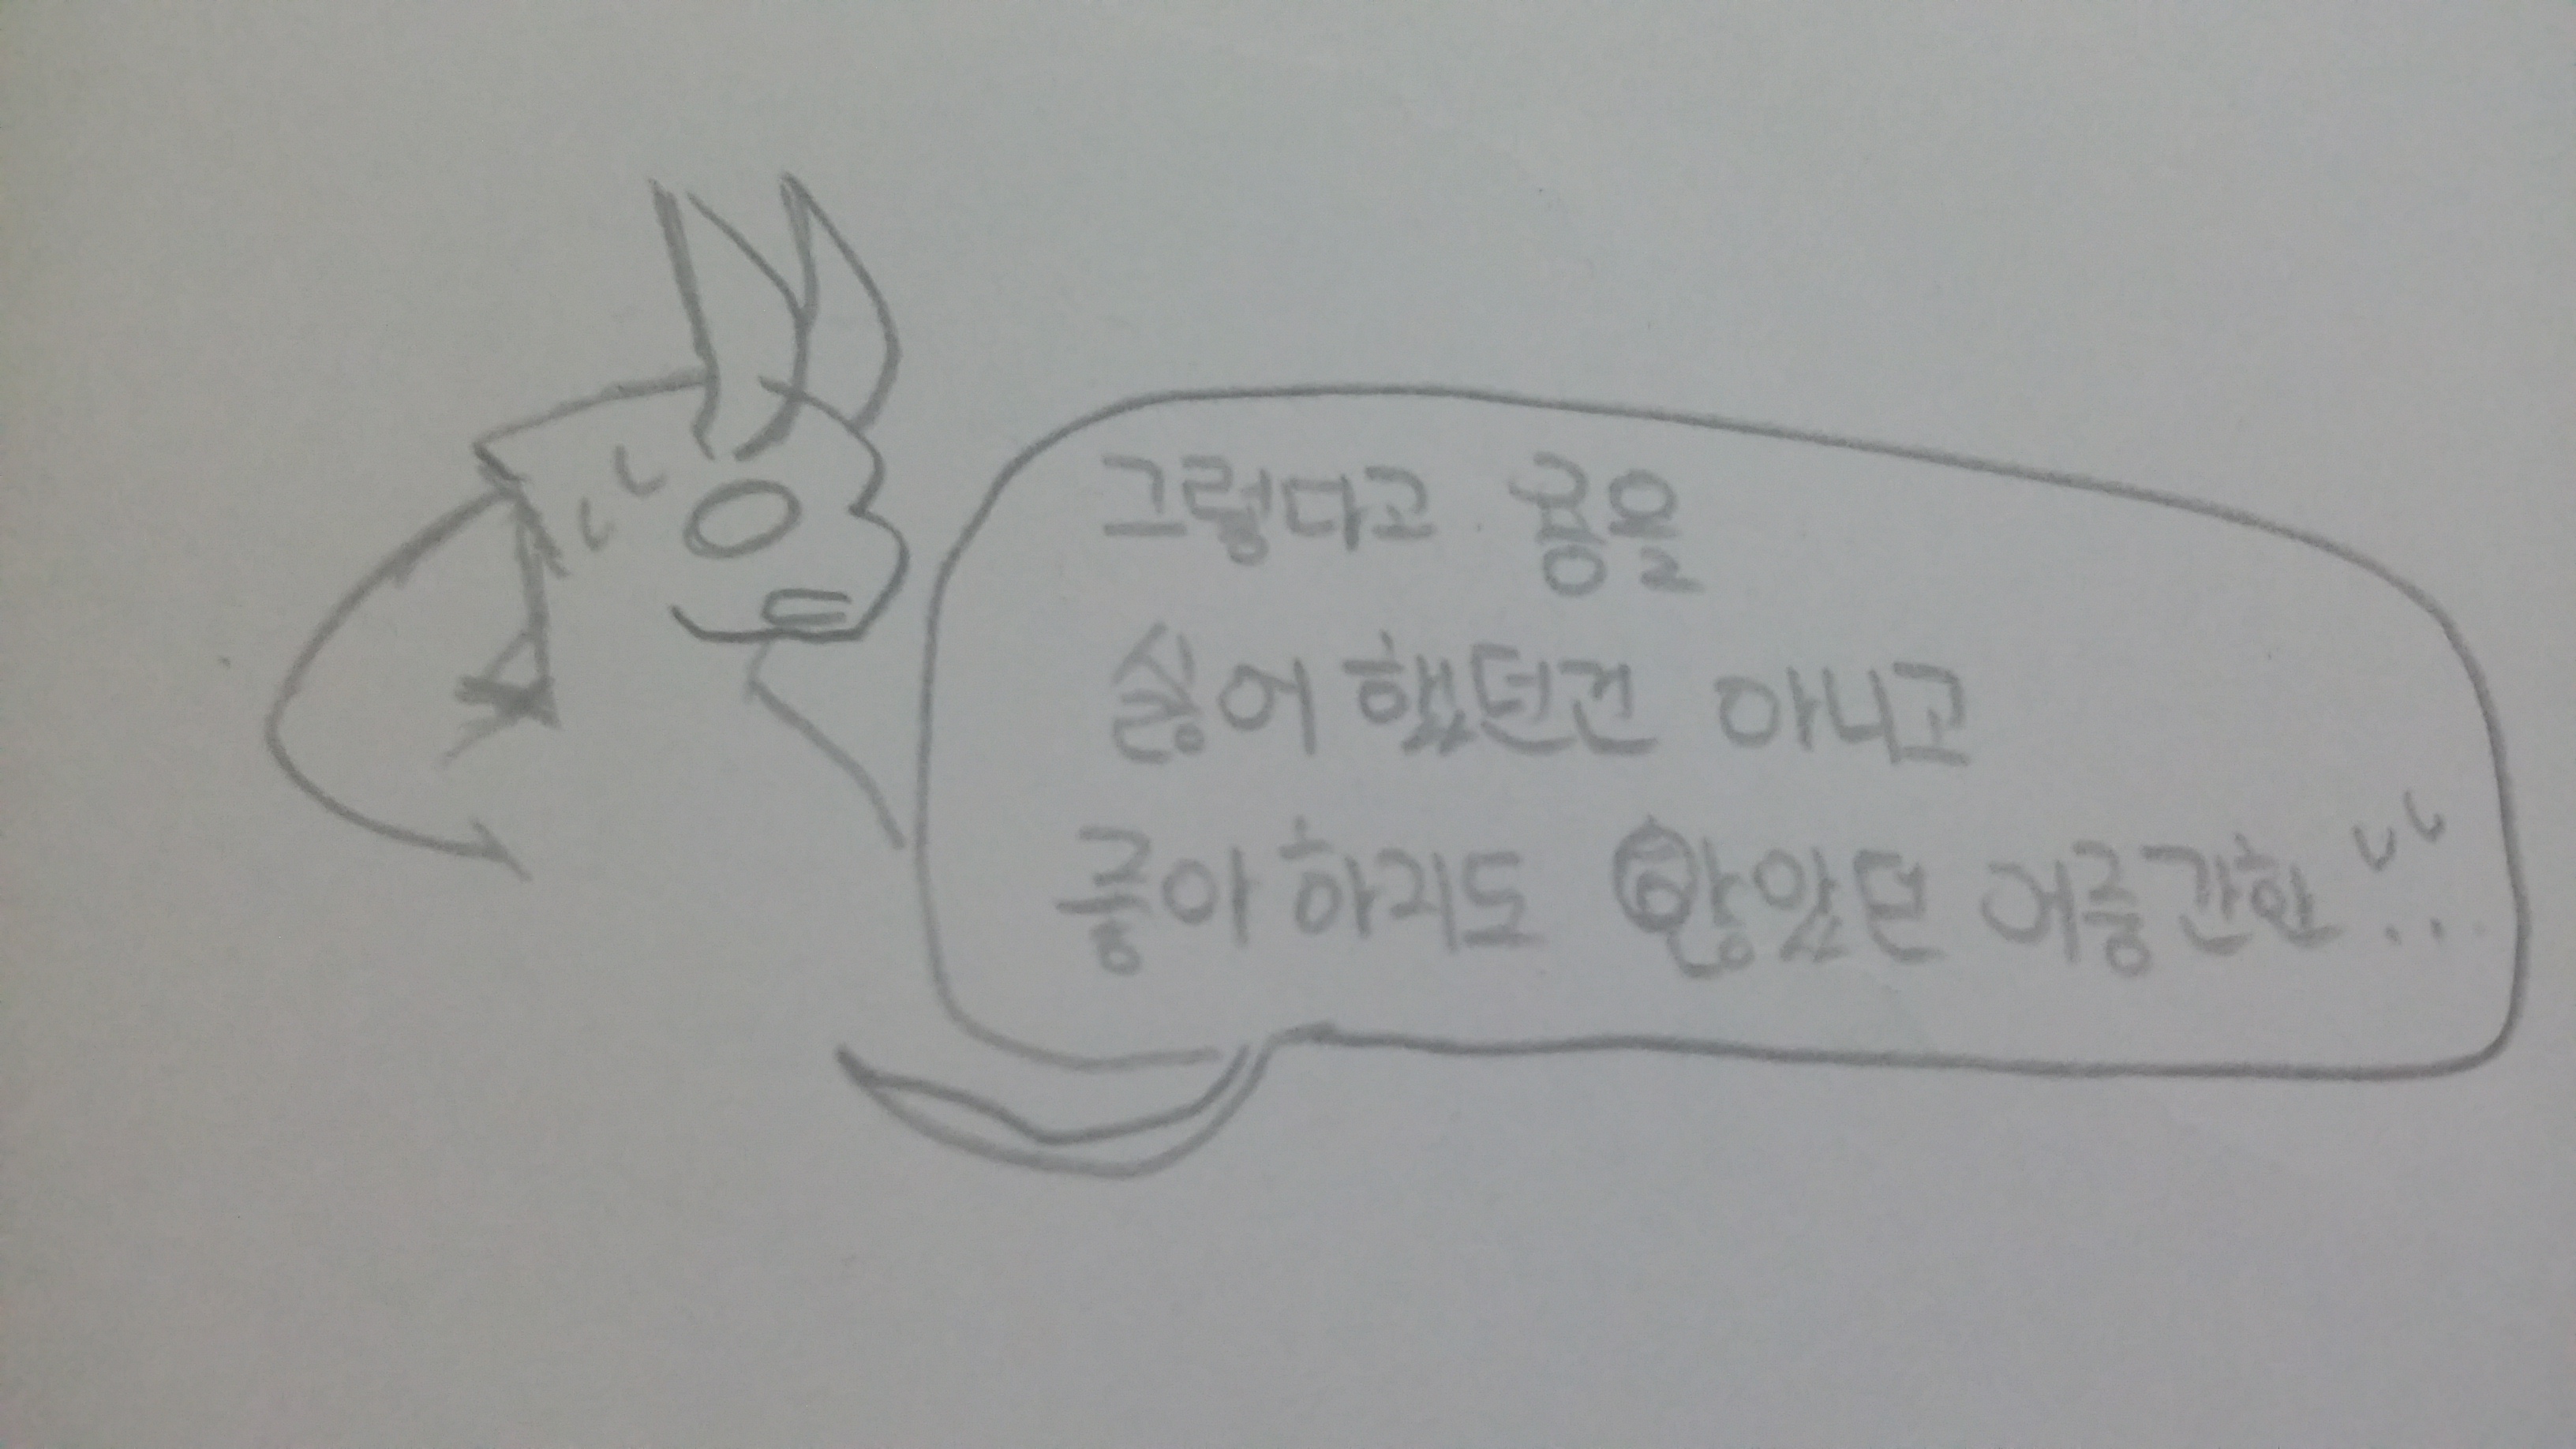 그렇다고 곰을
싫어 했던건 아니고
좋아 하지도 않았던 어중간한...